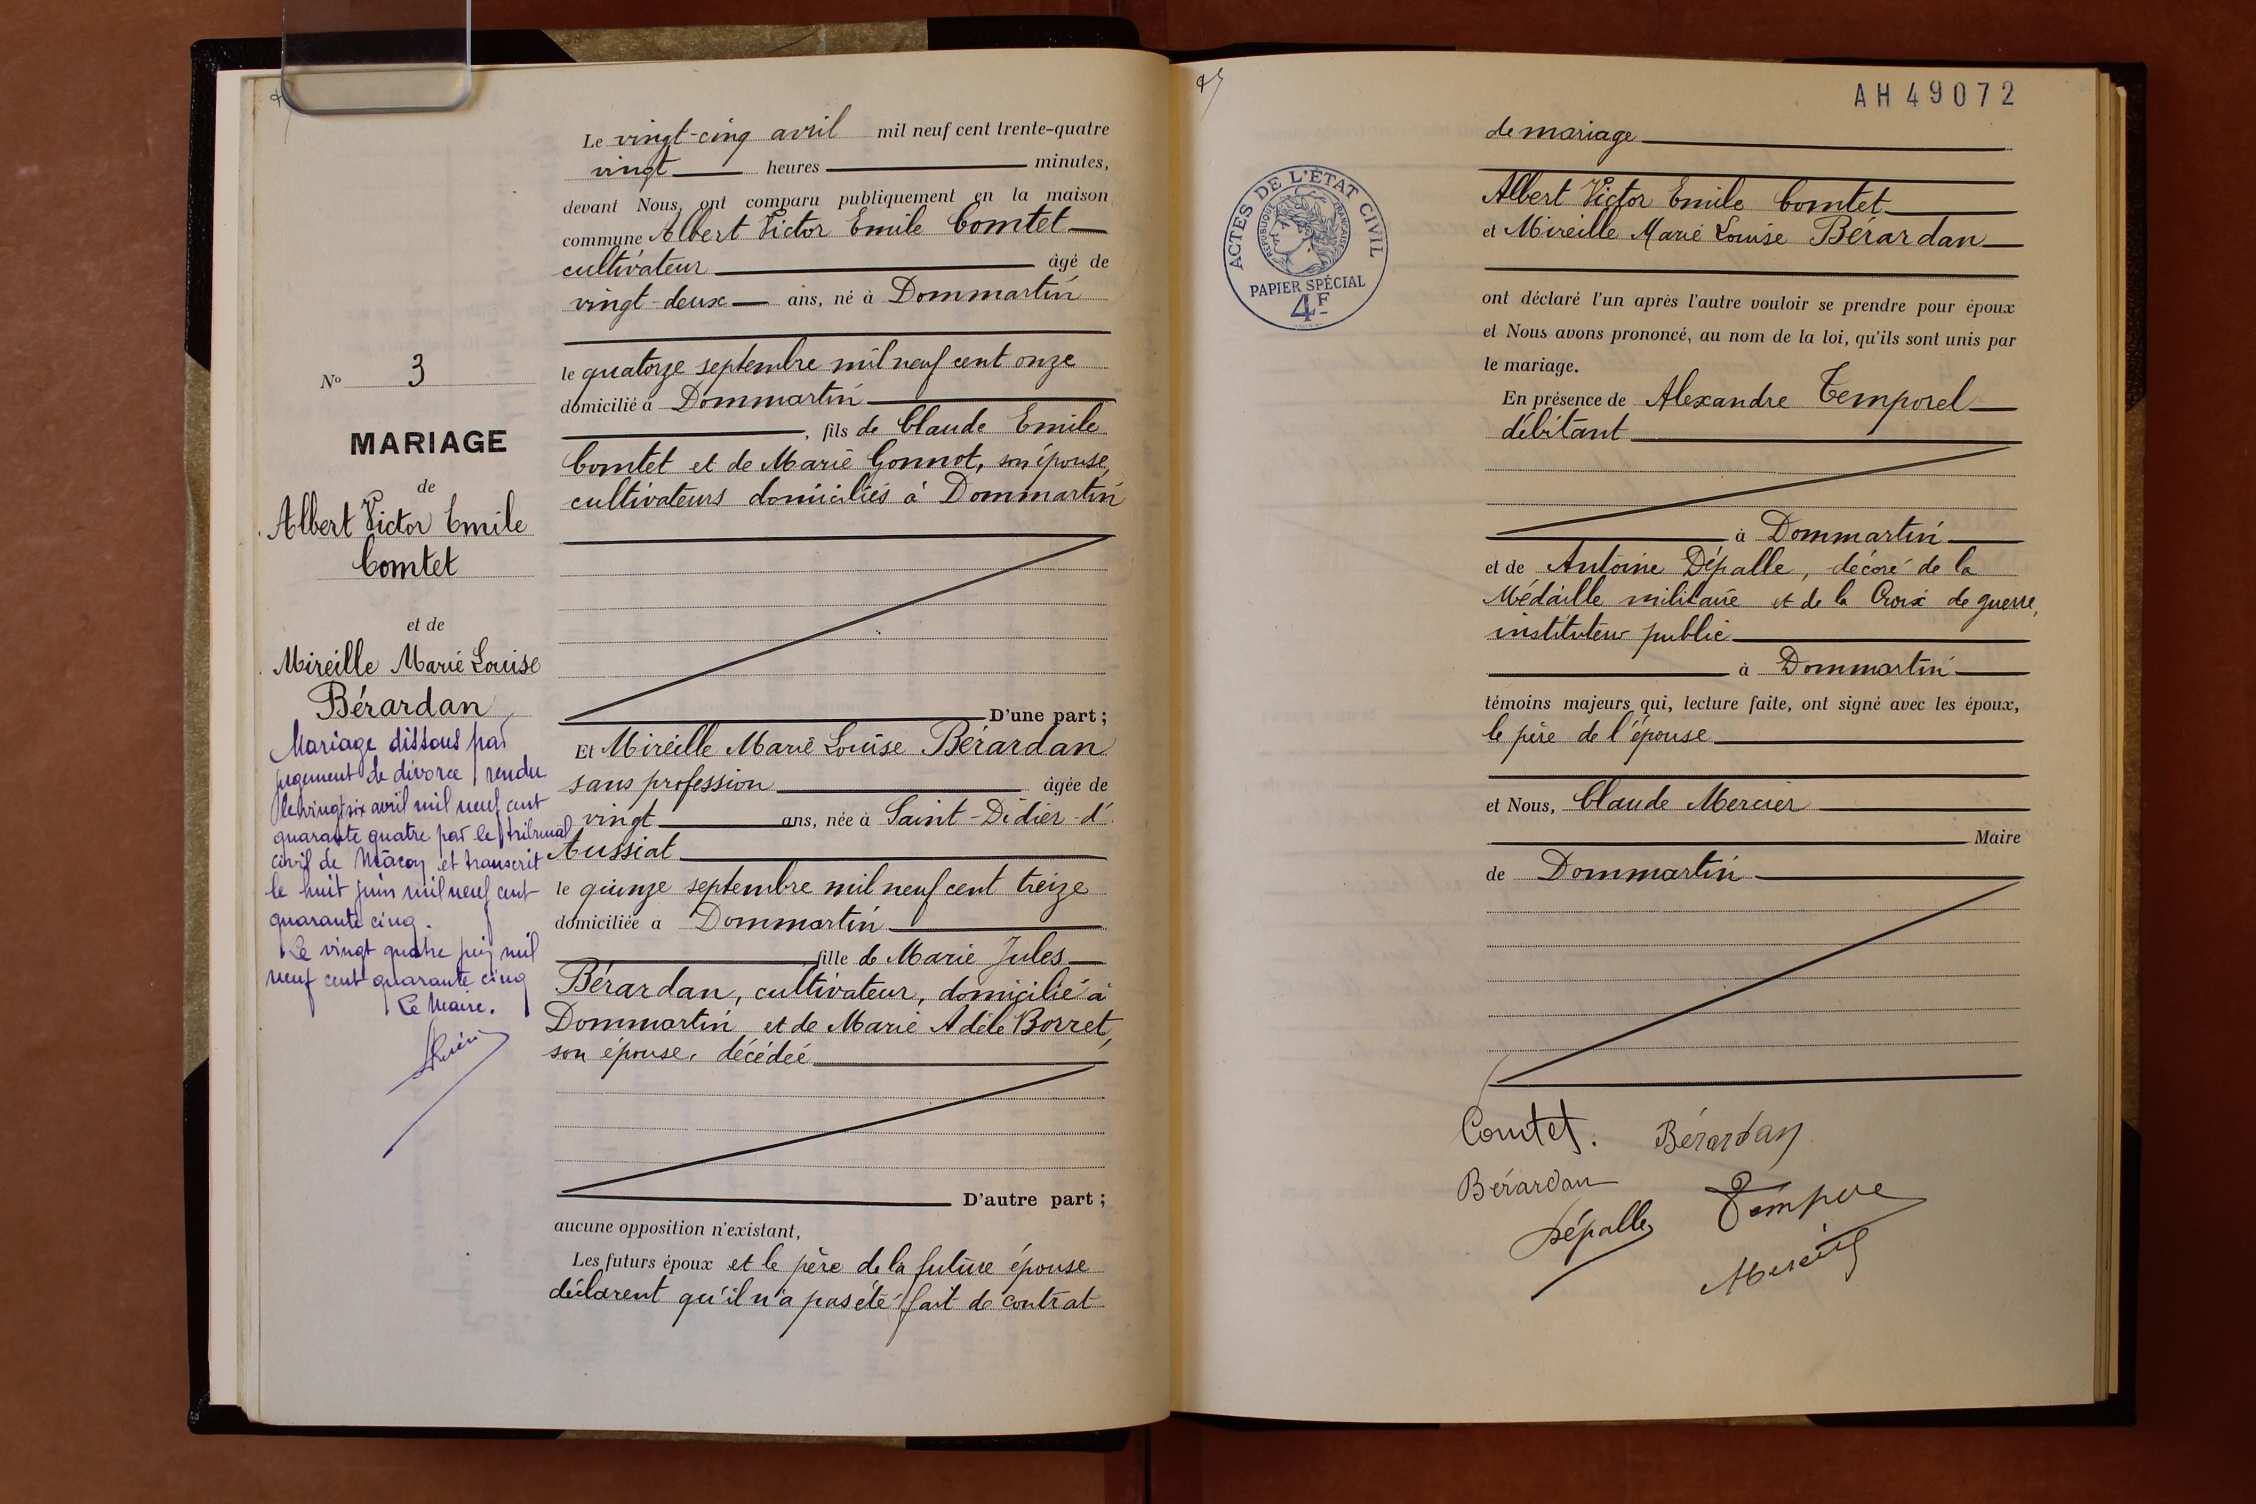 Le vingt-cinq avril mil neuf cent trente-quatre
vingt heures minutes,
devant Nous, ont comparu publiquement en la maison
commune Albert Victor Emile Comtet
cultivateur âgé de
vingt-deux ans, né à Dommartin
le quatorze septembre mil neuf cent onze
domicilié à Dommartin
, fils de Claude Emile
Comtet et de Marie Gonnot, son épouse,
cultivateurs domiciliés à Dommartin
D'une part ;
Et Mireille Marie Louise Bérardan
sans profession âgée de
vingt ans, née à Saint-Didier-d'
Aussiat
le quinze septembre mil neuf cent treize
domiciliée à Dommartin
fille de Marie Jules
Bérardan, cultivateur, domicilié à
Dommartin et de Marie Adèle Borret,
son épouse, décédée
D'autre part ;
aucune opposition n'existant,
Les futurs époux et le père de la future épouse
déclarent qu'il n'a pas été fait de contrat
N° 3
MARIAGE
de
Albert Victor Emile
Comtet
et de
Mireille Marie Louise
Bérardan
Mariage dissous par
jugement de divorce rendu
le vingt six avril mil neuf cent
quarante quatre par le tribunal
civil de Mâcon et transcrit
le huit juin mil neuf cent
quarante cinq.
Le vingt quatre juin mil
neuf cent quarante cinq
Le Maire.
AH49072
ACTES DE L'ÉTAT CIVIL
RÉPUBLIQUE FRANÇAISE
PAPIER SPÉCIAL
4F
de mariage
Albert Victor Emile Comtet
et Mireille Marie Louise Bérardan
ont déclaré l'un après l'autre vouloir se prendre pour époux
et Nous avons prononcé, au nom de la loi, qu'ils sont unis par
le mariage.
En présence de Alexandre Temporel
débitant
à Dommartin
et de Antoine Dépalle, décoré de la
Médaille militaire et de la Croix de guerre,
instituteur public
à Dommartin
témoins majeurs qui, lecture faite, ont signé avec les époux,
le père de l'épouse
et Nous, Claude Mercier
Maire
de Dommartin
Comtet. Bérardan
Bérardan
Dépalle